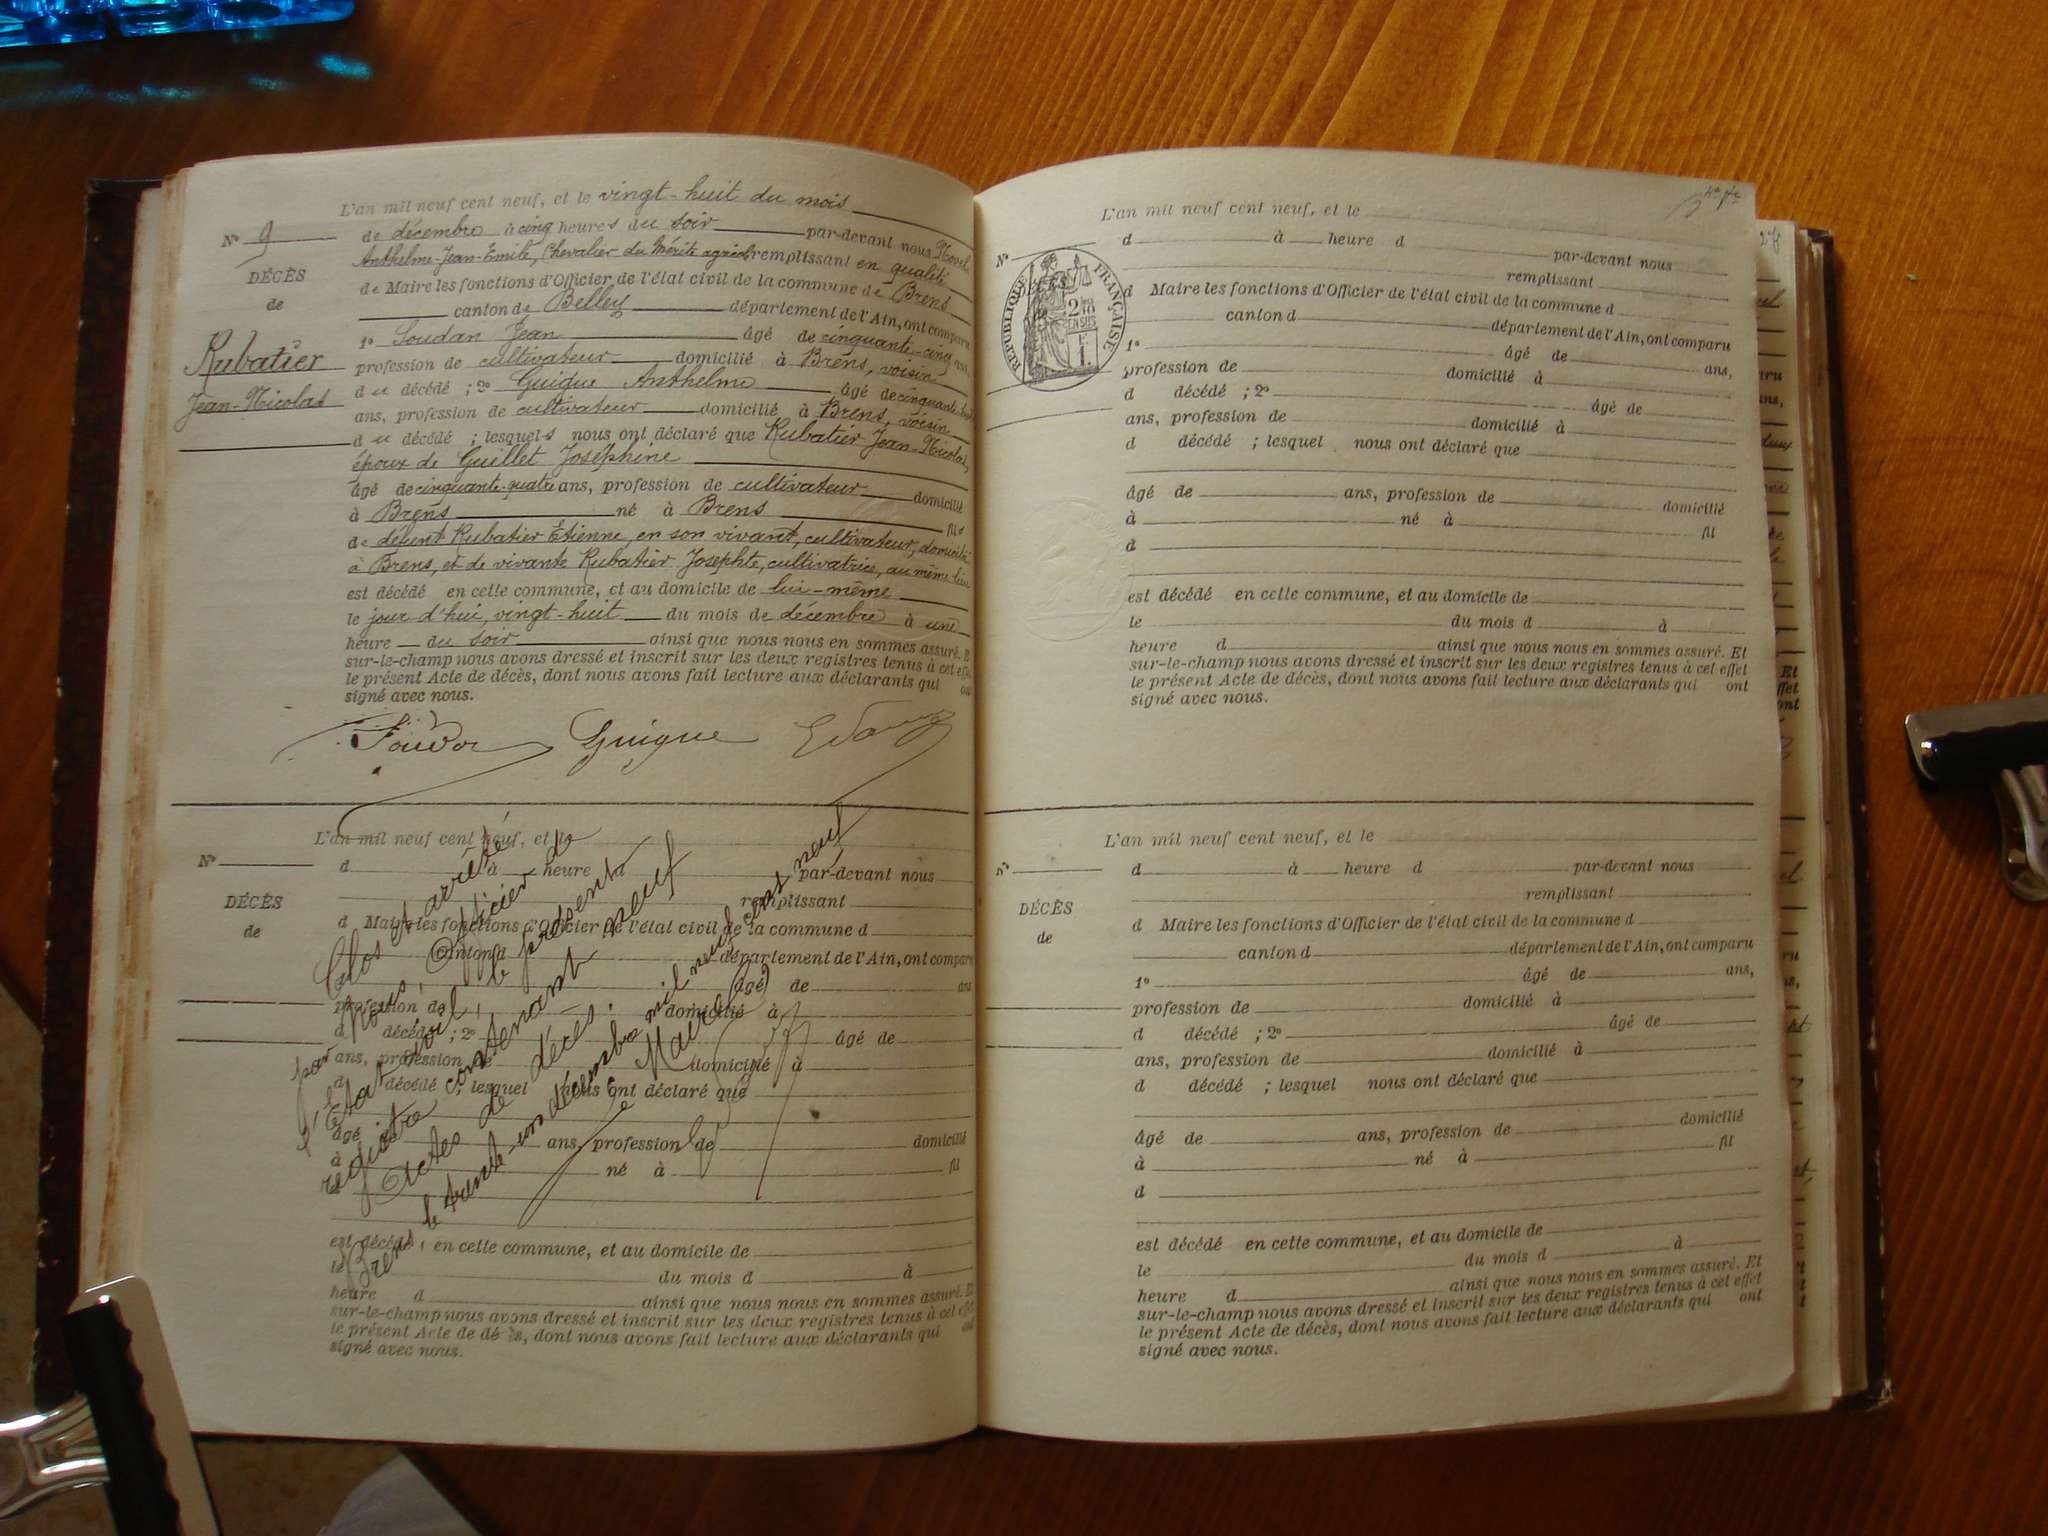 L'an mil neuf cent neuf, et le vingt-huit du mois
N° 9
de décembre à cinq heures du soir par-devant nous
Anthelme-Jean-Emile, Chevalier du Mérite agricole remplissant en qualité
DÉCÈS
de Maire les fonctions d'Officier de l'état civil de la commune de Brens
de
canton de Belley département de l'Ain, ont comparu
1° Soudan Jean âgé de cinquante-cinq ans,
Rubatier
profession de cultivateur domicilié à Brens, voisin
Jean-Nicolas
du décédé ; 2° Guigue Anthelme âgé de
ans, profession de cultivateur domicilié à Brens, voisin
du décédé ; lesquels nous ont déclaré que Rubatier Jean-Nicolas,
époux de Guillet Joséphine
âgé de cinquante-quatre ans, profession de cultivateur domicilié
à Brens né à Brens fils
de défunt Rubatier Etienne, en son vivant, cultivateur, domicilié
à Brens, et de vivante Rubatier Josephte, cultivatrice, au même lieu
est décédé en cette commune, et au domicile de lui-même
le jour d'hui, vingt-huit du mois de décembre à une
heure du soir ainsi que nous nous en sommes assuré. Et
sur-le-champ nous avons dressé et inscrit sur les deux registres tenus à cet effet
le présent Acte de décès, dont nous avons fait lecture aux déclarants qui ont
signé avec nous.
Guigue
L'an mil neuf cent neuf, et le
N°
d à heure d par-devant nous
remplissant
DÉCÈS
d Maire les fonctions d'Officier de l'état civil de la commune d
de
canton d département de l'Ain, ont comparu
âgé de ans
profession de domicilié à
d décédé ; 2° âgé de
ans, profession de domicilié à
d décédé ; lesquel nous ont déclaré que
âgé de ans, profession de domicilié
à né à fil
est décédé en cette commune, et au domicile de
le du mois d à
heure d ainsi que nous nous en sommes assuré. Et
sur-le-champ nous avons dressé et inscrit sur les deux registres tenus à cet effet
le présent Acte de décès, dont nous avons fait lecture aux déclarants qui ont
signé avec nous.
Clos et arrêté
par nous, Officier de
l'Etat civil, le présent
registre contenant neuf
Actes de décès.
Brens, le trente-un décembre mil neuf cent neuf
Le Maire
L'an mil neuf cent neuf, et le
d à heure d par-devant nous
N°
remplissant
RÉPUBLIQUE FRANÇAISE
d Maire les fonctions d'Officier de l'état civil de la commune d
canton d département de l'Ain, ont comparu
1° âgé de ans,
profession de domicilié à
d décédé ; 2° âgé de
ans, profession de domicilié à
d décédé ; lesquel nous ont déclaré que
âgé de ans, profession de domicilié
à né à fil
d
est décédé en cette commune, et au domicile de
le du mois d à
heure d ainsi que nous nous en sommes assuré. Et
sur-le-champ nous avons dressé et inscrit sur les deux registres tenus à cet effet
le présent Acte de décès, dont nous avons fait lecture aux déclarants qui ont
signé avec nous.
L'an mil neuf cent neuf, et le
N°
d à heure d par-devant nous
remplissant
DÉCÈS
d Maire les fonctions d'Officier de l'état civil de la commune d
de
canton d département de l'Ain, ont comparu
1° âgé de ans,
profession de domicilié à
d décédé ; 2° âgé de
ans, profession de domicilié à
d décédé ; lesquel nous ont déclaré que
âgé de ans, profession de domicilié
à né à fil
d
est décédé en cette commune, et au domicile de
le du mois d à
heure d ainsi que nous nous en sommes assuré. Et
sur-le-champ nous avons dressé et inscrit sur les deux registres tenus à cet effet
le présent Acte de décès, dont nous avons fait lecture aux déclarants qui ont
signé avec nous.